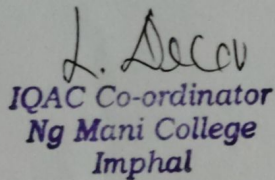 IQAC Co-ordinator
Ng Mani College
Imphal